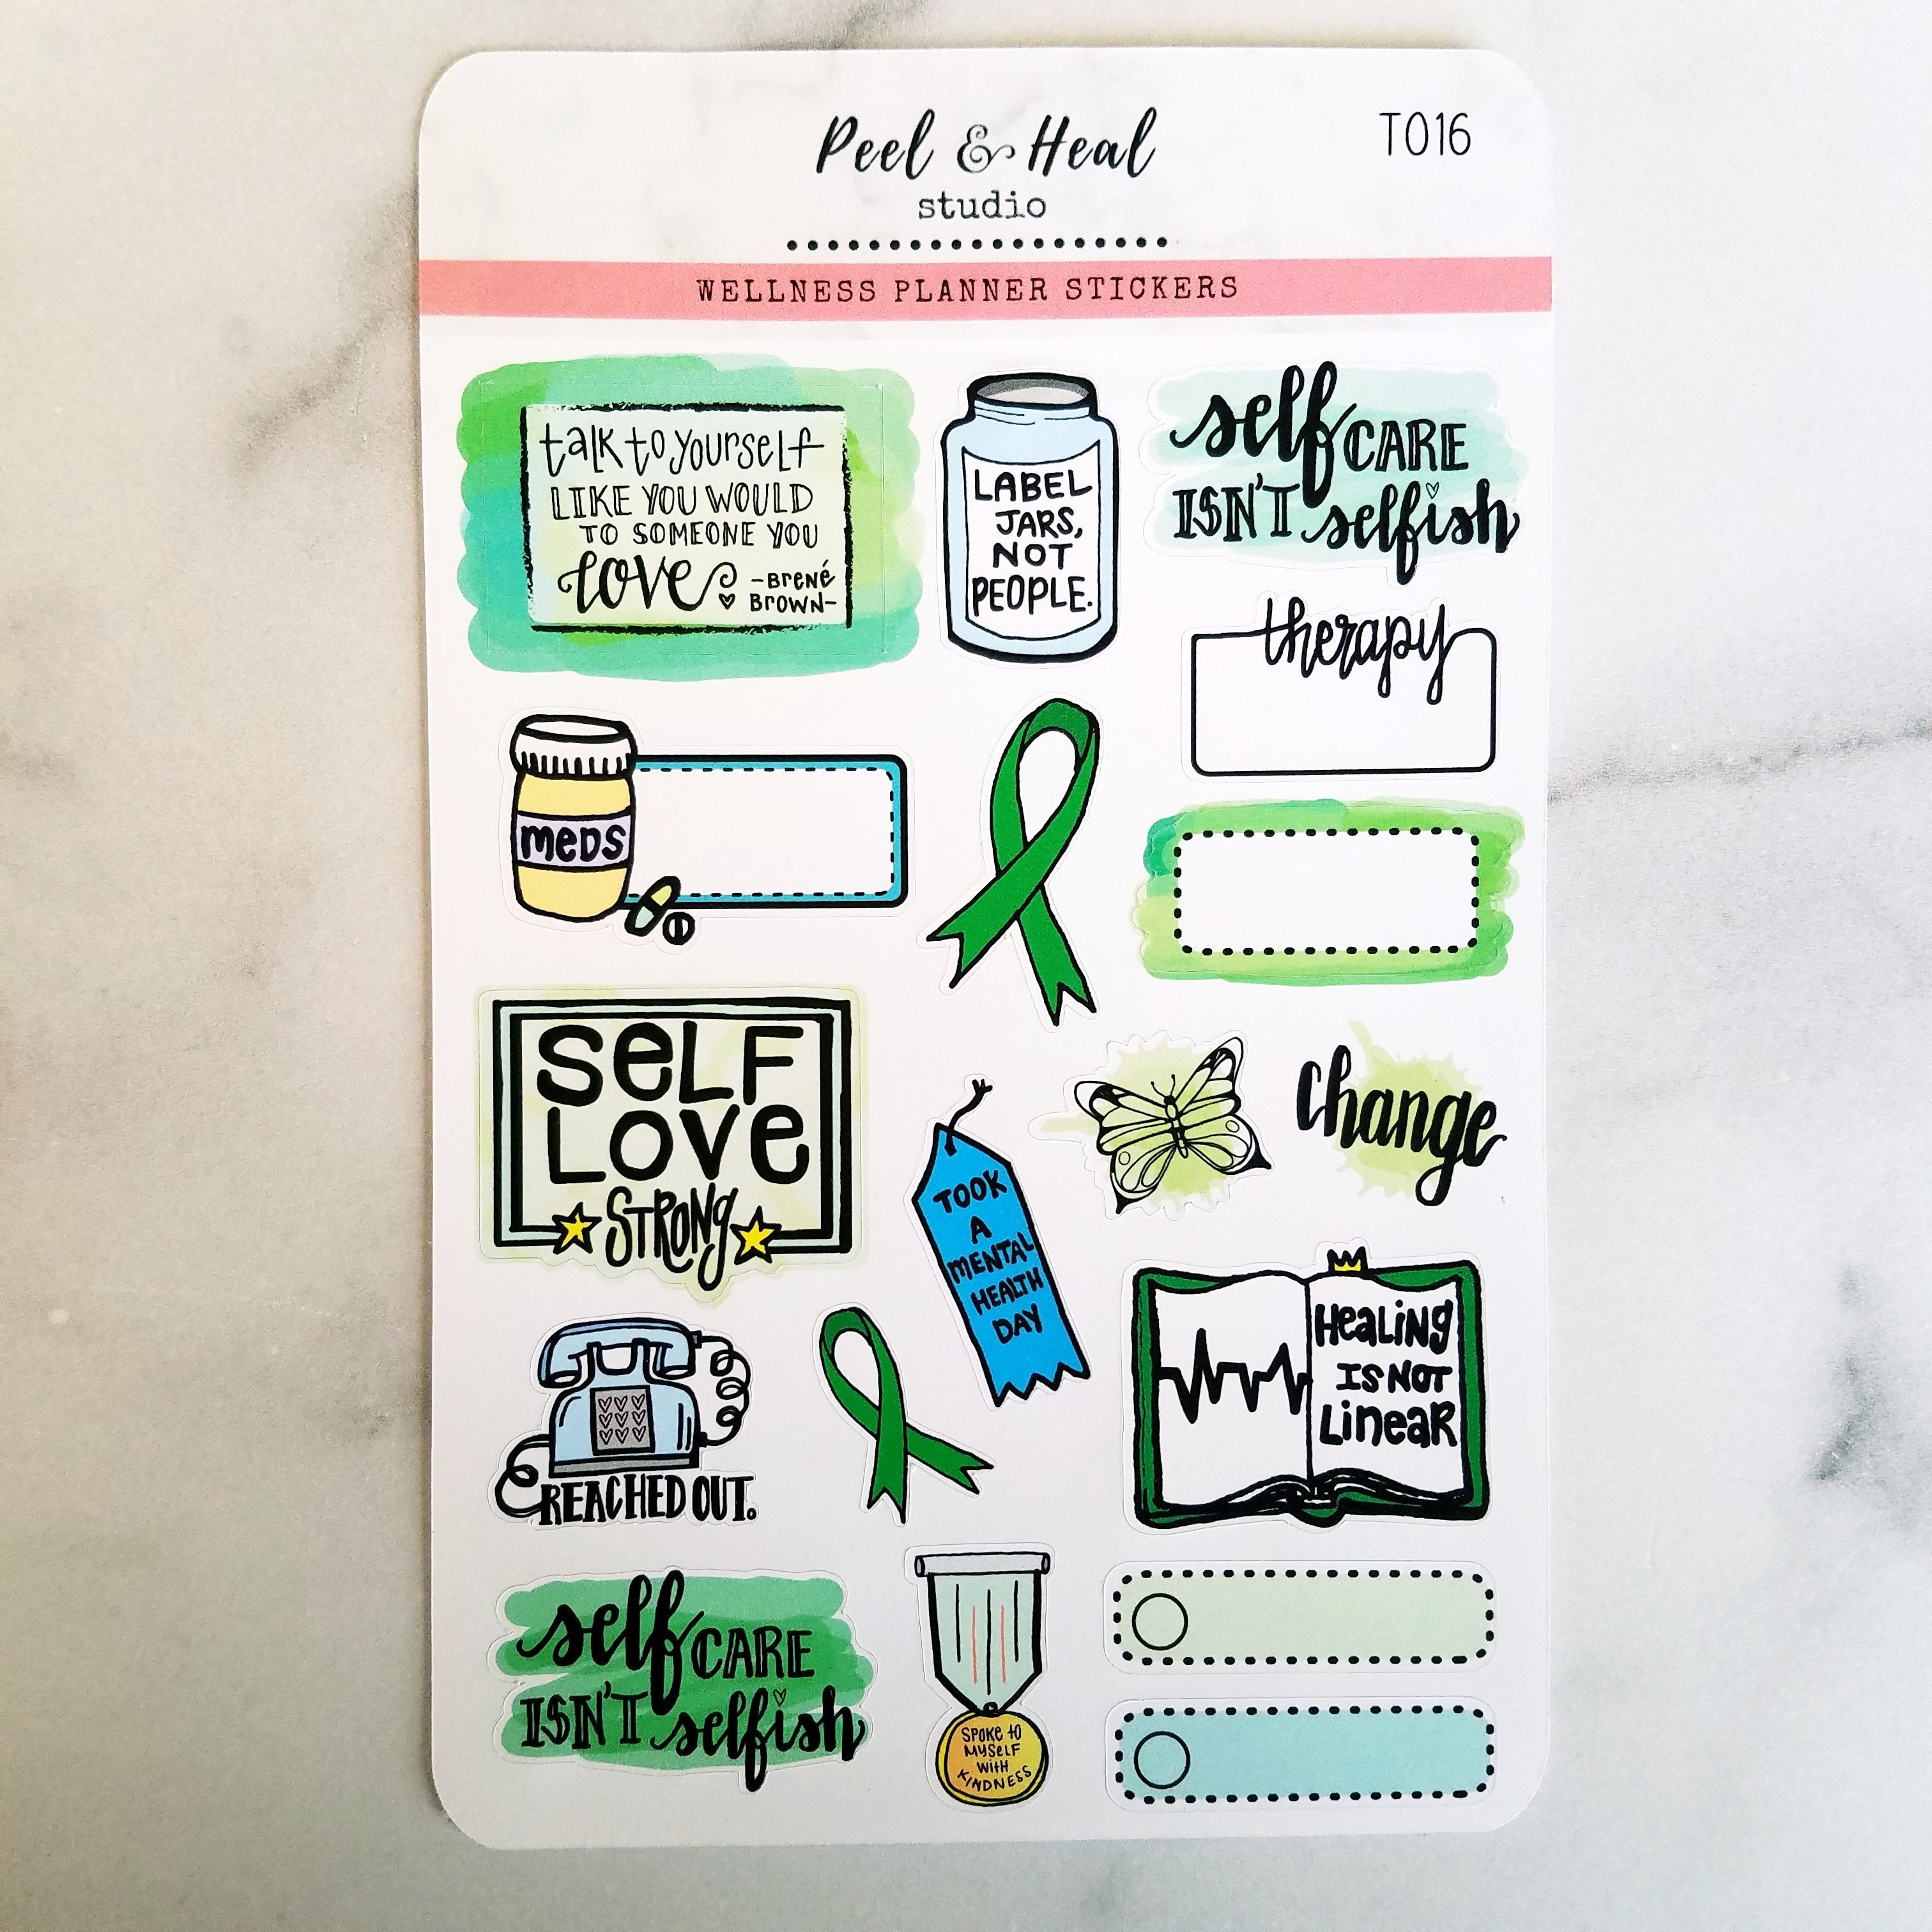 Peel & Heal
studio
T016
WELLNESS PLANNER STICKERS
talk to yourself
LIKE YOU WOULD
TO SOMEONE YOU
love
-Brené
Brown-
LABEL
JARS,
NOT
PEOPLE.
self CARE
ISN'T selfish
therapy
meds
SeLF
LOVe
STRONg
TOOK
A
MENTAL
HEALTH
DAY
Change
HeaLiNg
IS NOT
LineaR
REACHED OUT.
self CARE
ISN'T selfish
SPOKE to
MySeLF
WitH
KINDNESS